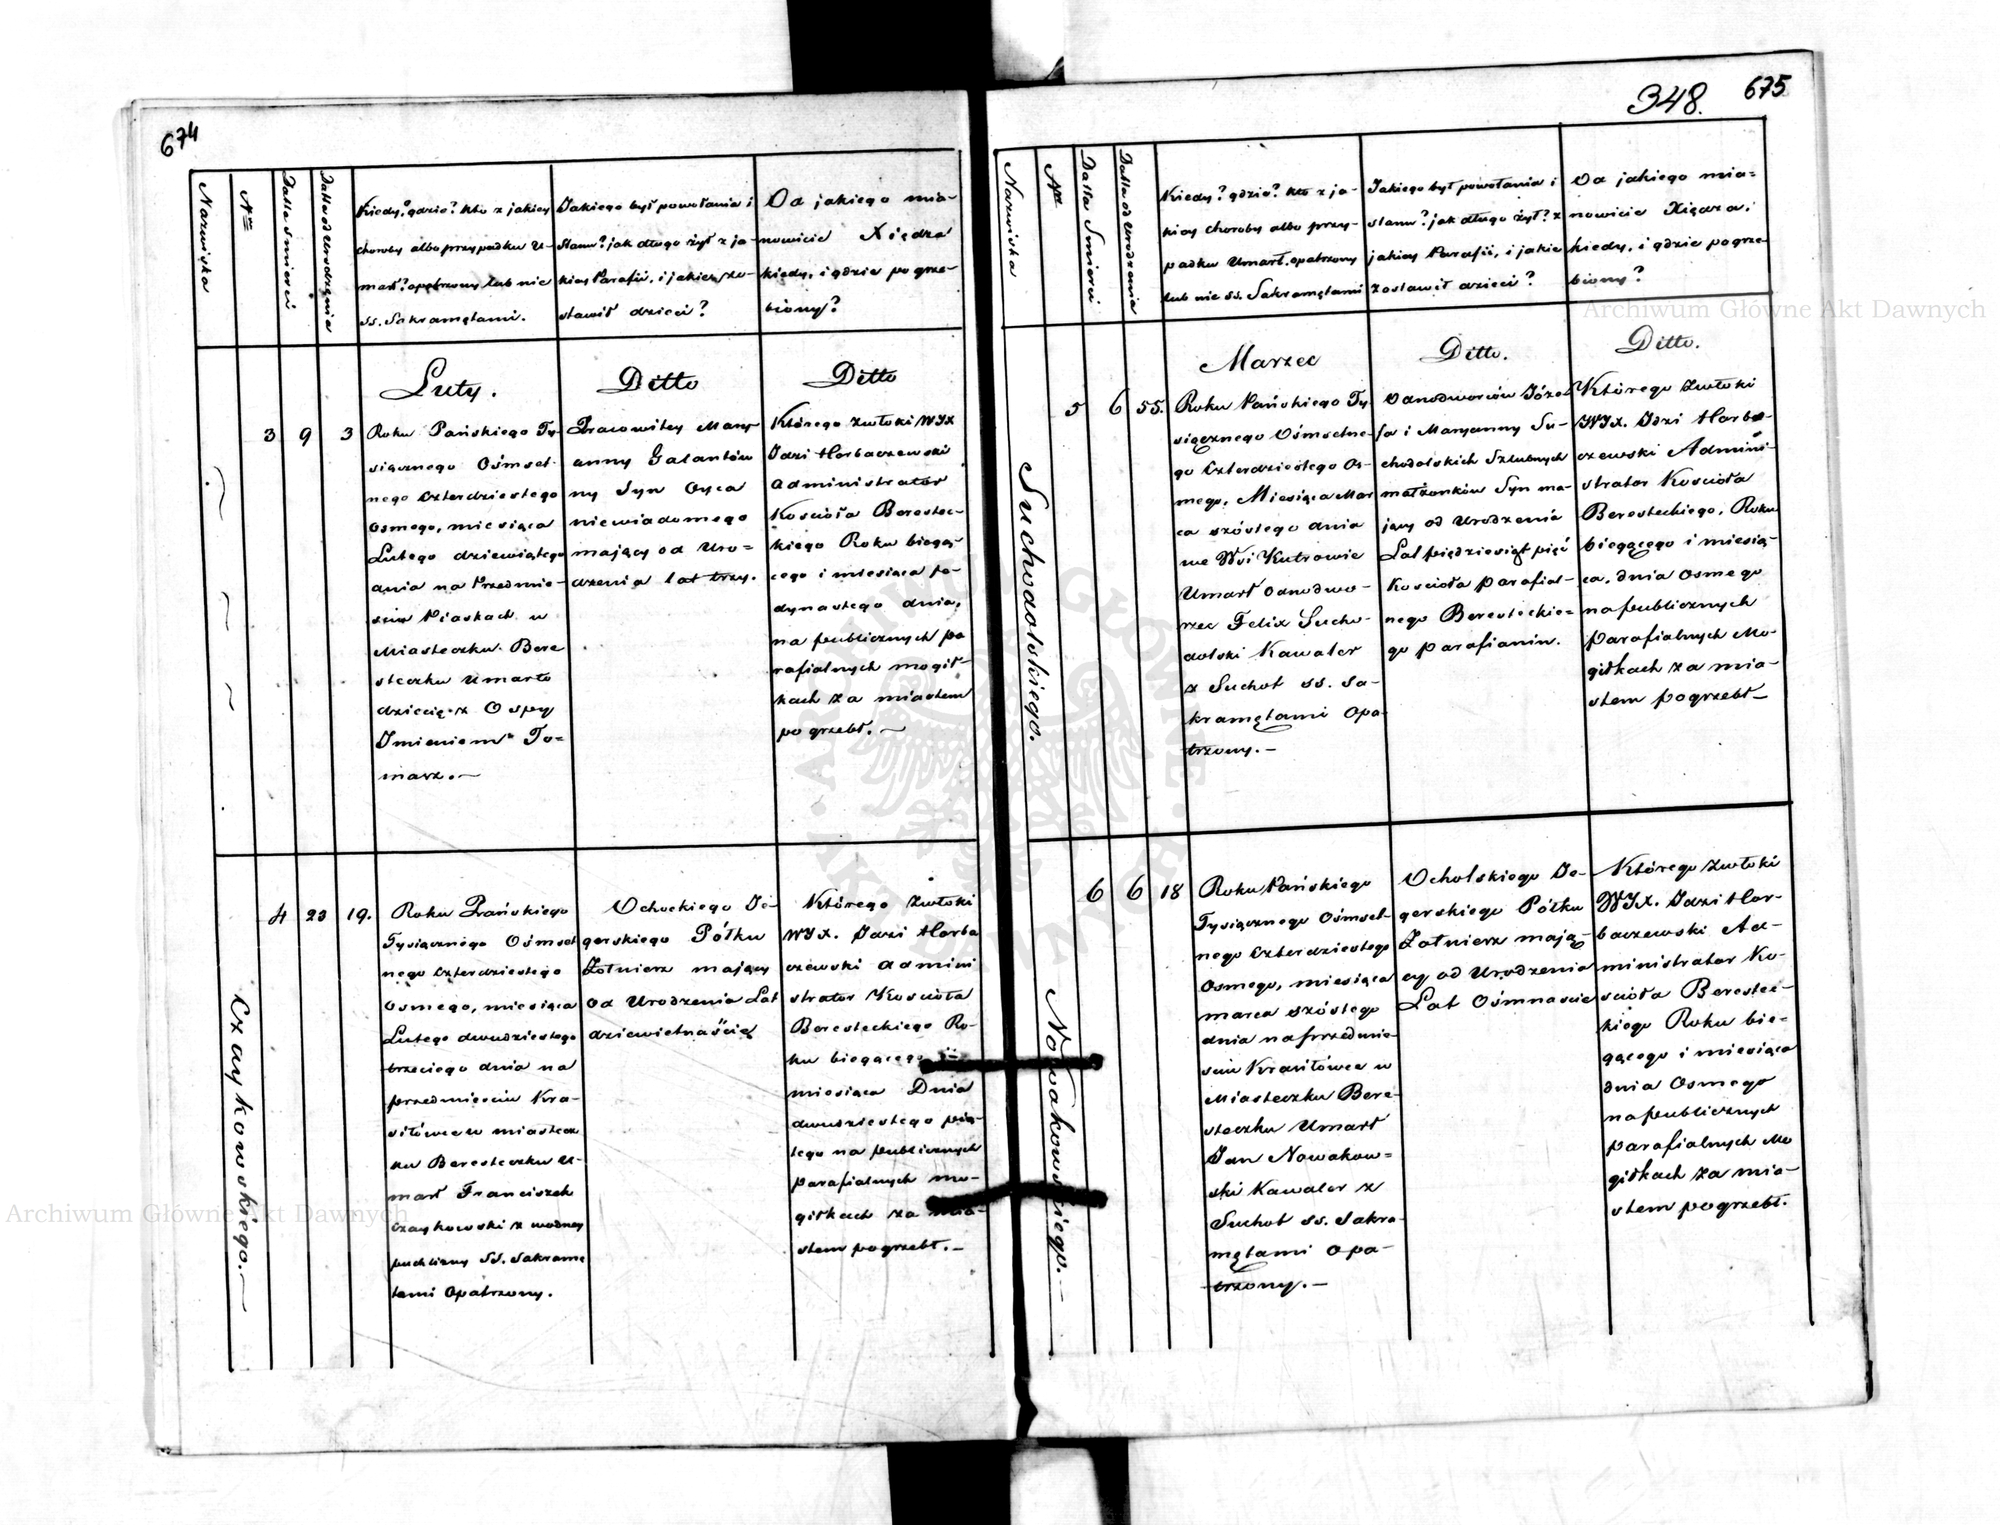 674
Nazwiska
Nro
Datta śmierci
Datta od Urodzenia
Kiedy? gdzie? kto z jakiey
choroby albo przypadku u-
marł? opatrzony lub nie
SS. Sakramętami.
Jakiego był powołania i
Stanu? jak długo żył z ja-
kiey Parafii, i jakie zo-
stawił dzieci?
Od jakiego mia-
nowicie Xiędza
kiedy, i gdzie pogrze-
biony?
Luty.
Ditto
Ditto
3 9 3
Roku Pańskiego Ty-
siącznego Ośmset-
nego Czterdziestego
Osmego, miesiąca
Lutego dziewiątego
dnia na Przedmie-
sciu Piaskach w
Miasteczku Bere
steczku umarło
dziecię z Ospy
Imieniem To=
masz.—
Pracowitey Mary
anny Galantów
ny Syn Oyca
niewiadomego
mający od Uro=
dzenia lat trzy.
Którego zwłoki WJX
Idzi Horbaczewski
Administrator
Kościoła Berestec-
kiego Roku biegą-
cego i miesiąca je-
dynastego dnia,
na publicznych pa
rafialnych mogił-
kach za miastem
pogrzebł.—
Czaykowskiego.—
4 23 19.
Roku Pańskiego
Tysiącznego Ośmset
nego Czterdziestego
Osmego, miesiąca
Lutego dwudziestego
trzeciego dnia na
przedmiesciu Kra-
siłówce w miastecz
ku Beresteczku u-
marł Franciszek
Czaykowski z wodney
puchliny SS. Sakramę
tami Opatrzony.
Ochockiego Je-
gerskiego Półku
Żołnierz mający
od Urodzenia Lat
dziewietnaście
Którego zwłoki
WJX. Idzi Horba
czewski Admini
strator Kościoła
Beresteckiego Ro-
ku biegącego i
miesiąca Dnia
dwudziestego pią-
tego na publicznych
parafialnych mo-
giłkach za mia-
stem pogrzebł.—
348. 675
Nazwiska
Nro
Datta Smierci
Datta od Urodzenia
Kiedy? gdzie? kto z ja-
kiey choroby albo przy-
padku Umarł. opatrzony
lub nie SS. Sakramętami
Jakiego był powołania i
stanu? jak długo żył? z
jakiey Parafii, i jakie
zostawił dzieci?
Od jakiego mia=
nowicie Xiędza,
kiedy, i gdzie pogrze-
biony?
Marzec
Ditto.
Ditto.
Suchodolskiego.
5 6 55.
Roku Pańskiego Ty
siącznego Ośmsetne-
go Czterdziestego Os-
mego, Miesiąca Mar
ca szóstego dnia
we Wsi Kutrowie
Umarł Odnodwo-
rzec Felix Sucho-
dolski Kawaler
z Suchot SS. Sa-
kramętami Opa-
trzony.—
Odnodworców Józe-
fa i Maryanny Su-
chodolskich Szlubnych
małżonków Syn ma-
jący od Urodzenia
Lat pięćdziesiąt pięć
Kościoła Parafial-
nego Beresteckie=
go parafianin.
Którego zwłoki
WJX. Idzi Horba-
czewski Admini-
strator Kościoła
Beresteckiego, Roku
biegącego i miesią-
ca, dnia Osmego
na publicznych
parafialnych Mo-
giłkach za mia-
stem pogrzebł—
Nowakowskiego.—
6 6 18
Roku Pańskiego
Tysiącznego Ośmset-
nego Czterdziestego
Osmego, miesiąca
marca szóstego
dnia na przedmie-
sciu Krasiłówce w
Miasteczku Bere-
steczku Umarł
Jan Nowakow=
ski Kawaler z
Suchot SS. Sakra-
mętami Opa-
trzony.—
Ocholskiego Je-
gerskiego Półku
Żołnierz mają-
cy od Urodzenia
Lat Ośmnaście
Którego zwłoki
WJX. Idzi Hor-
baczewski Ad-
ministrator Ko-
ścioła Berestec-
kiego Roku bie-
gącego i miesiąca
dnia Osmego
na publicznych
parafialnych Mo
giłkach za mia-
stem pogrzebł.
Archiwum Główne Akt Dawnych
Archiwum Główne Akt Dawnych